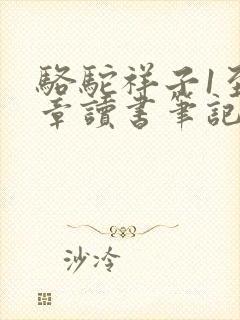 駱駝祥子1至
章讀書筆記
沙冷